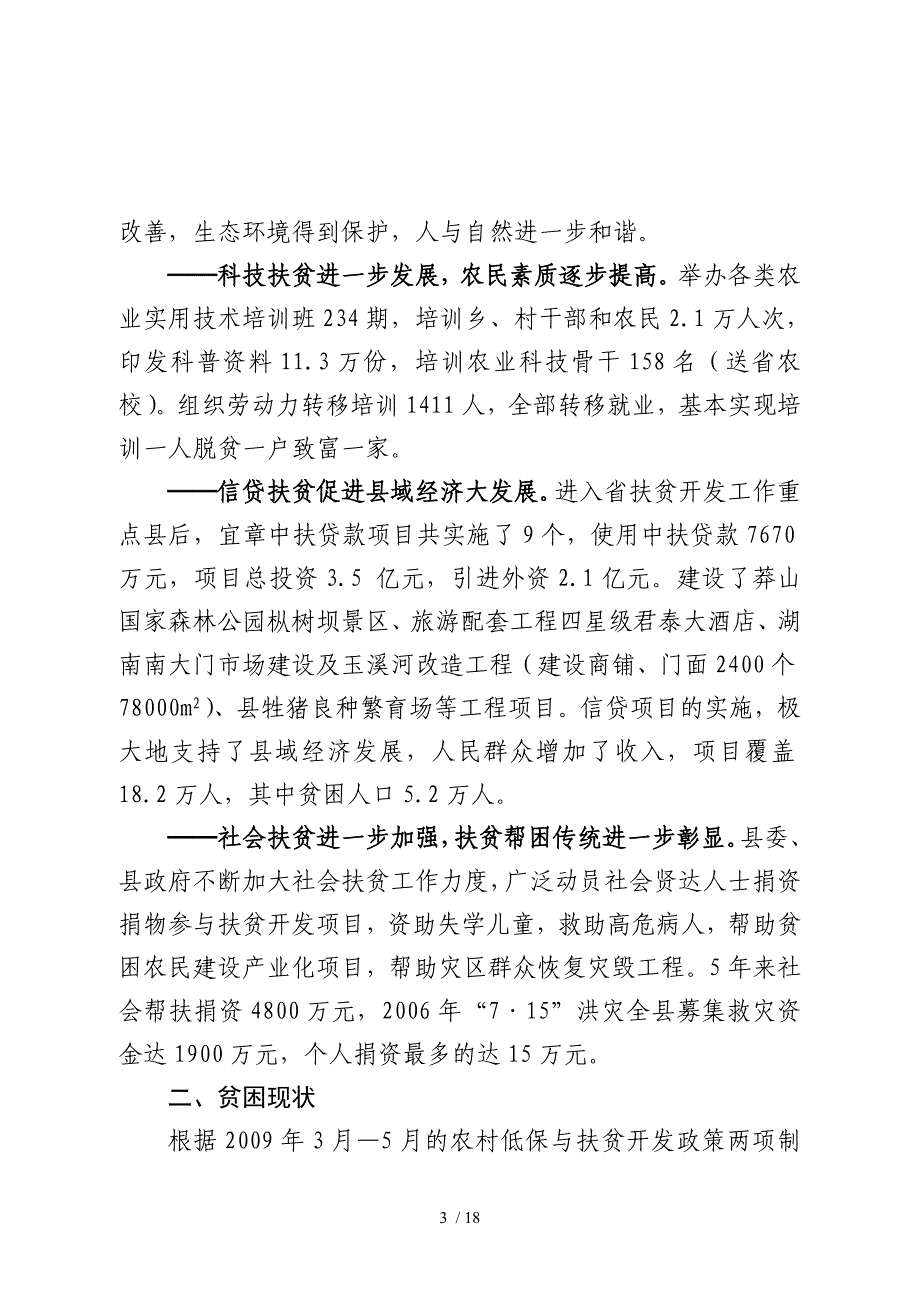 改善，生态环境得到保护，人与自然进一步和谐。
——科技扶贫进一步发展，农民素质逐步提高。举办各类农
业实用技术培训班 234 期，培训乡、村干部和农民 2.1 万人次，
印发科普资料 11.3 万份，培训农业科技骨干 158 名（送省农
校）。组织劳动力转移培训 1411 人，全部转移就业，基本实现培
训一人脱贫一户致富一家。
——信贷扶贫促进县域经济大发展。进入省扶贫开发工作重
点县后，宜章中扶贷款项目共实施了 9 个，使用中扶贷款 7670
万元，项目总投资 3.5 亿元，引进外资 2.1 亿元。建设了莽山
国家森林公园枞树坝景区、旅游配套工程四星级君泰大酒店、湖
南南大门市场建设及玉溪河改造工程（建设商铺、门面 2400 个
78000m²）、县牲猪良种繁育场等工程项目。信贷项目的实施，极
大地支持了县域经济发展，人民群众增加了收入，项目覆盖
18.2 万人，其中贫困人口 5.2 万人。
——社会扶贫进一步加强，扶贫帮困传统进一步彰显。县委、
县政府不断加大社会扶贫工作力度，广泛动员社会贤达人士捐资
捐物参与扶贫开发项目，资助失学儿童，救助高危病人，帮助贫
困农民建设产业化项目，帮助灾区群众恢复灾毁工程。5 年来社
会帮扶捐资 4800 万元，2006 年“7·15”洪灾全县募集救灾资
金达 1900 万元，个人捐资最多的达 15 万元。
二、贫困现状
根据 2009 年 3 月—5 月的农村低保与扶贫开发政策两项制
3 / 18